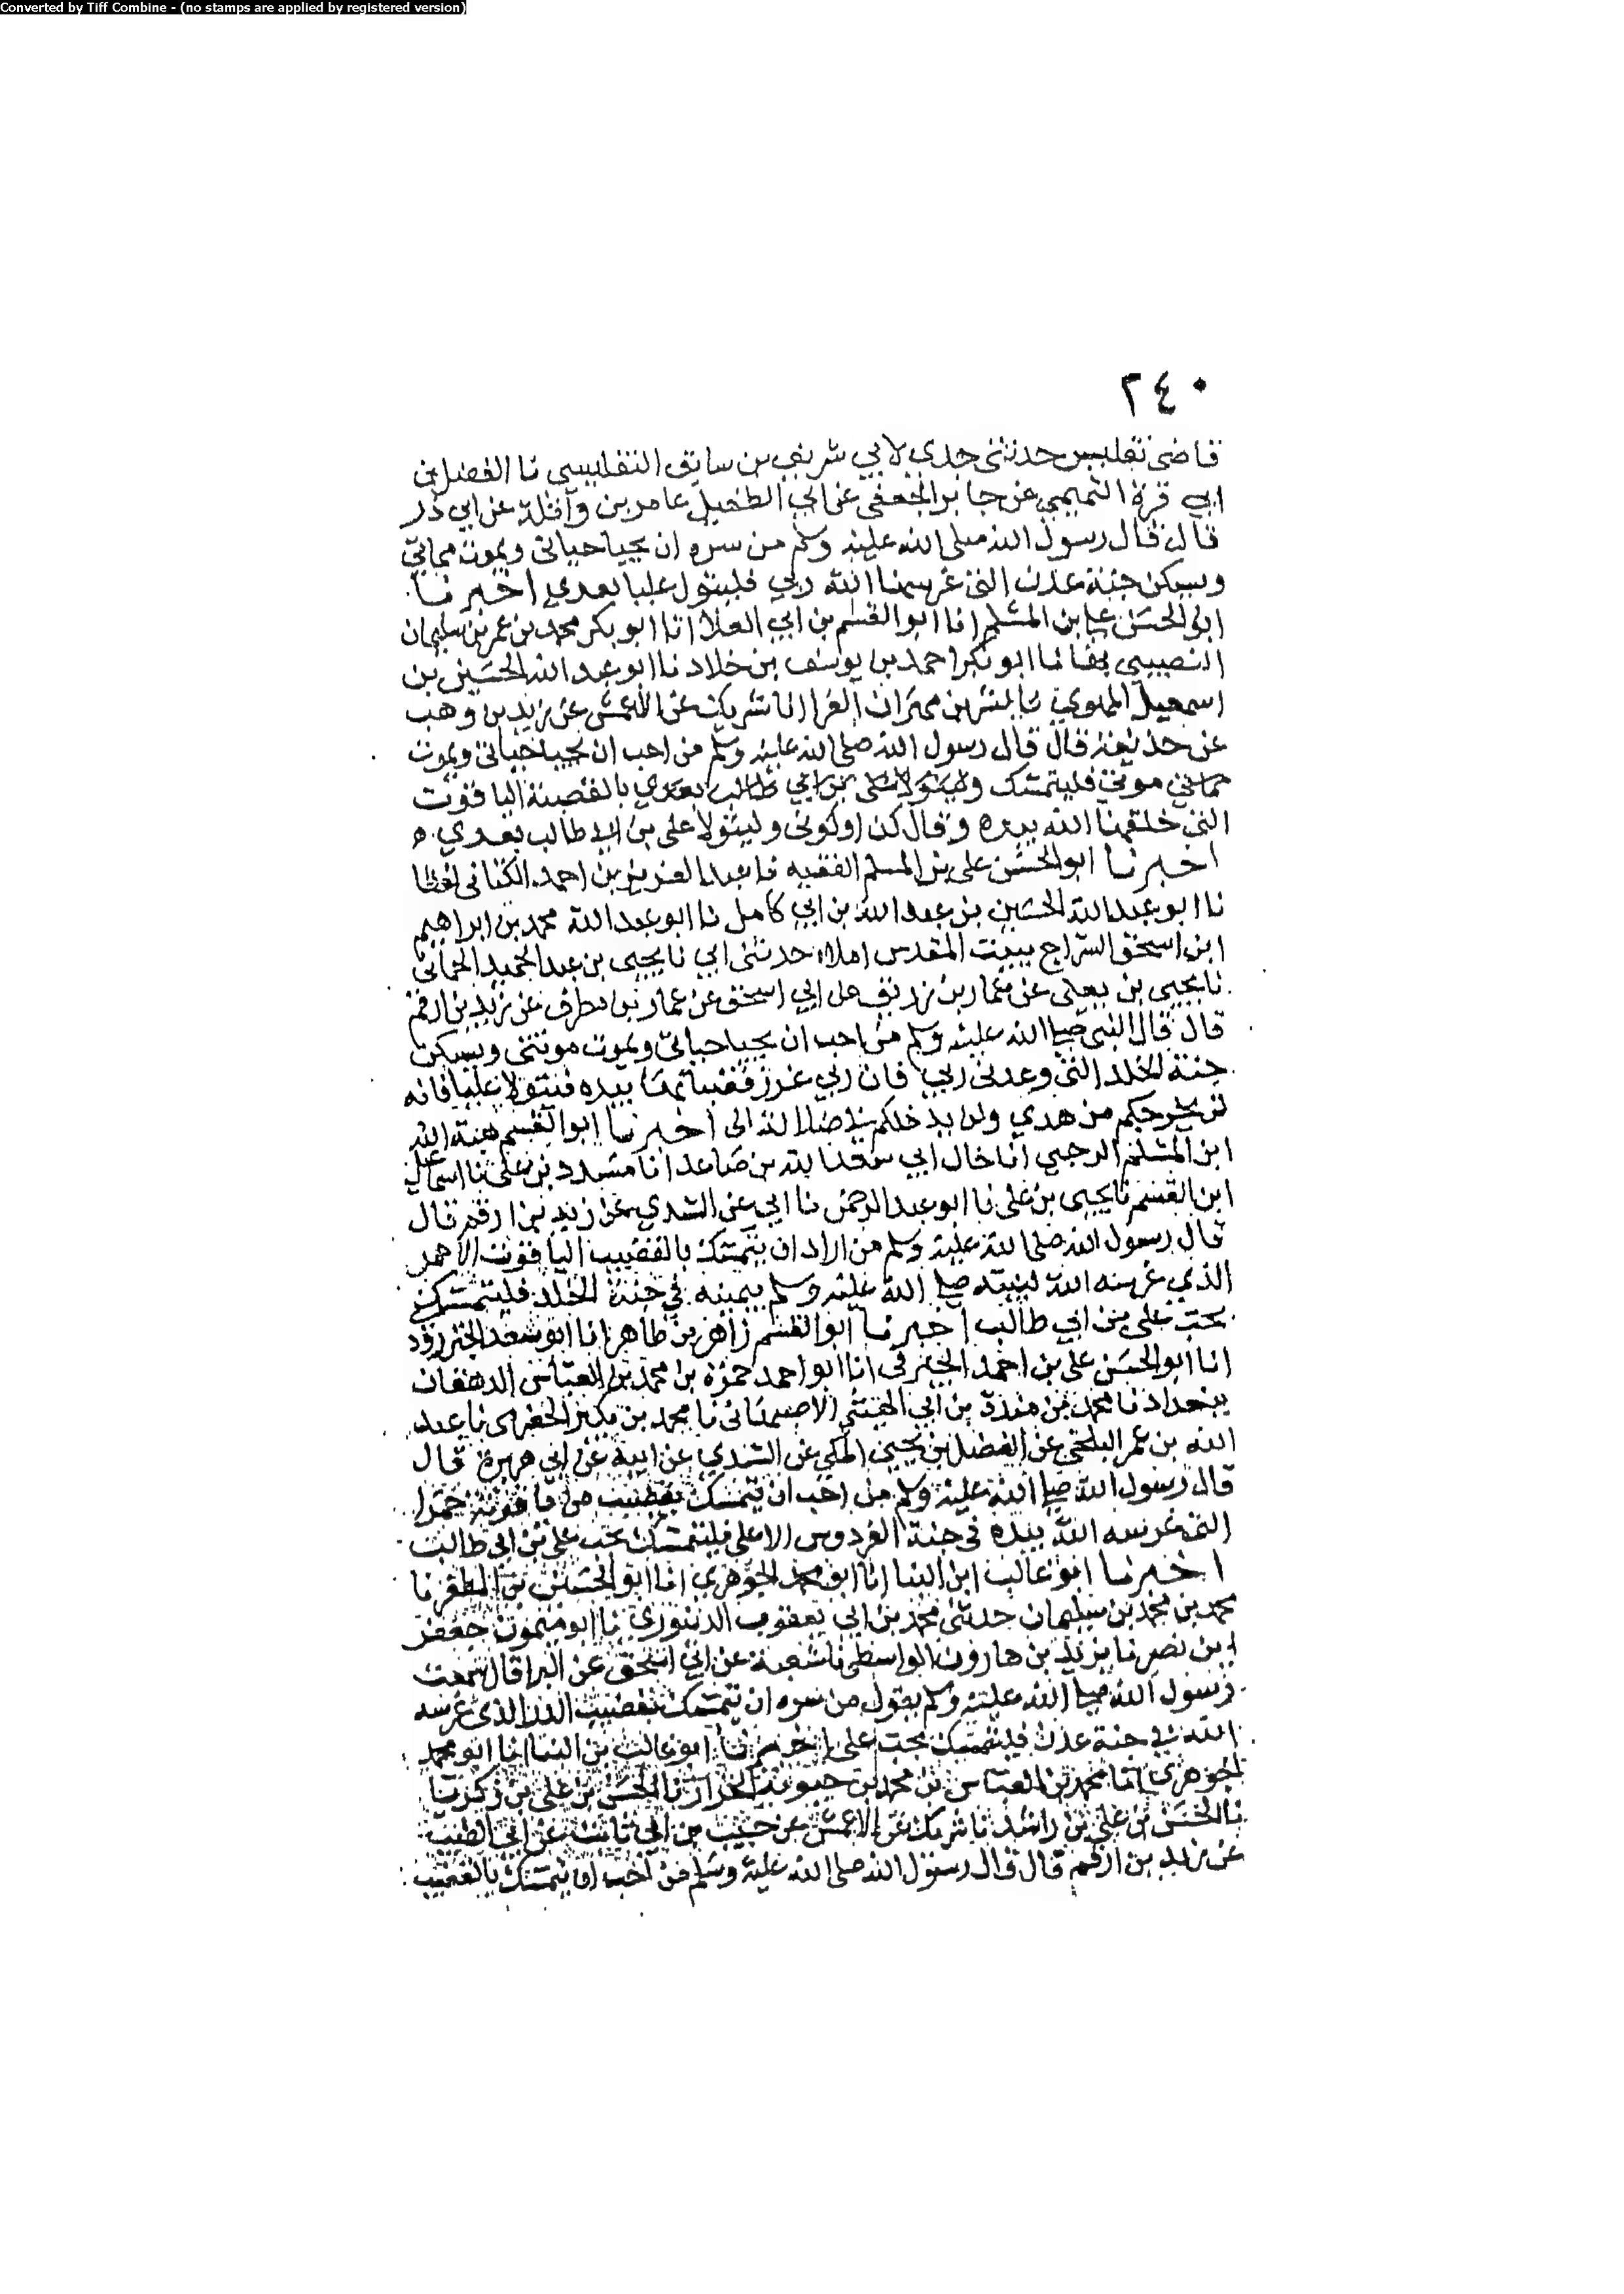 Converted by Tiff Combine - (no stamps are applied by registered version)
٢٤٠
قاضى تفليس حدثنى جدي لابي شريف بن سابق التفليسي نا الفضل بن
ابي قرة التميمي عن جابر الجعفى عن ابي الطفيل عامر بن واثلة عن ابي ذر
قال قال رسول الله صلى الله عليه وسلم من سره ان يحيا حياتى ويموت مماتي
ويسكن جنة عدن التى غرسها الله ربي فليتول عليا بعدي اخبرنا
ابو الحسن علي بن المسلم انا ابو القسم بن ابي العلا انا ابو بكر محمد بن عمر بن سليمان
النصيبي بها نا ابو بكر احمد بن يوسف بن خلاد نا ابو عبد الله الحسين بن
اسمعيل المهري نا بشر بن مهران الفرا نا شريك عن الاعمش عن زيد بن وهب
عن حذيفة قال قال رسول الله صلى الله عليه وسلم من احب ان يحيا حياتى ويموت
موتي فليتمسك بالقصبة الياقوت
التى خلقها الله بيده وقال كن او كونى وليتولا على بن ابي طالب بعدي ه
اخبرنا ابو الحسن على بن المسلم الفقيه نا عبد العزيز بن احمد الكتانى لفظا
نا ابو عبد الله الحسين بن عبد الله بن ابي كامل نا ابو عبد الله محمد بن ابراهيم
ابن اسحق السراج ببيت المقدس املاء حدثنى ابي نا يحيى بن عبد الحميد الحمانى
نا يحيى بن يعلى عن عمار بن زريق عن ابي اسحق عن عمار بن مطرف عن زيد بن ارقم
قال قال النبى صلى الله عليه وسلم من احب ان يحيا حياتى ويموت موتتى ويسكن
جنة الخلد التى وعدنى ربي فان ربي غرز قضباتها بيده فليتولا عليا فانه
لن يخرجكم من هدي ولن يدخلكم فى ضلالة الى اخبرنا ابو القسم هبة الله
ابن المسلم الرحبي انا خال ابي سعد الله بن صاعد انا مسدد بن على نا اسماعيل
ابن القسم نا يحيى بن على نا ابو عبد الرحمن نا ابي عن السدي عن زيد بن ارقم قال
قال رسول الله صلى الله عليه وسلم من اراد ان يتمسك بالقضيب الياقوت الاحمر
الذي غرسه الله لنبيه صلى الله عليه وسلم بيمينه في جنة الخلد فليتمسك
بحب على بن ابي طالب اخبرنا ابو القسم زاهر بن طاهر انا ابو سعد الجنزرود
انا ابو الحسن على بن احمد انا ابو احمد حمزة بن محمد بن العباس الدهقان
ببغداد نا محمد بن مندة بن ابي الهيثم الاصبهانى نا محمد بن بكير الحضرمى نا عبد
الله بن عمر البلخي عن الفضل بن يحيى المكي عن السدي عن ابيه عن ابي هريرة قال
قال رسول الله صلى الله عليه وسلم من احب ان يتمسك بقضيب من ياقوتة حمرا
التى غرسه الله بيده في جنة الفردوس الاعلى فليتمسك بحب على بن ابي طالب
اخبرنا ابو غالب ابن البنا انا ابو محمد الجوهري انا ابو الحسين بن المظفر نا
محمد بن محمد بن سليمان حدثنى محمد بن ابي يعقوب الدينوري نا ابو ميمون جعفر
ابن نصر نا يزيد بن هارون الواسطى نا شعبة عن ابي اسحق عن البرا قال سمعت
رسول الله صلى الله عليه وسلم يقول من سره ان يتمسك بقضيب الدر الذى غرسه
الله في جنة عدن فليتمسك بحب على اخبرنا ابو غالب بن البنا انا ابو محمد
الجوهري انا محمد بن العباس بن محمد بن حيوية الخزاز نا الحسن بن على بن زكريا
نا الحسن بن علي بن راشد نا شريك عن الاعمش عن حبيب بن ابي ثابت عن ابي الطفيل
عن زيد بن ارقم قال قال رسول الله صلى الله عليه وسلم من احب ان يتمسك بالقضيب